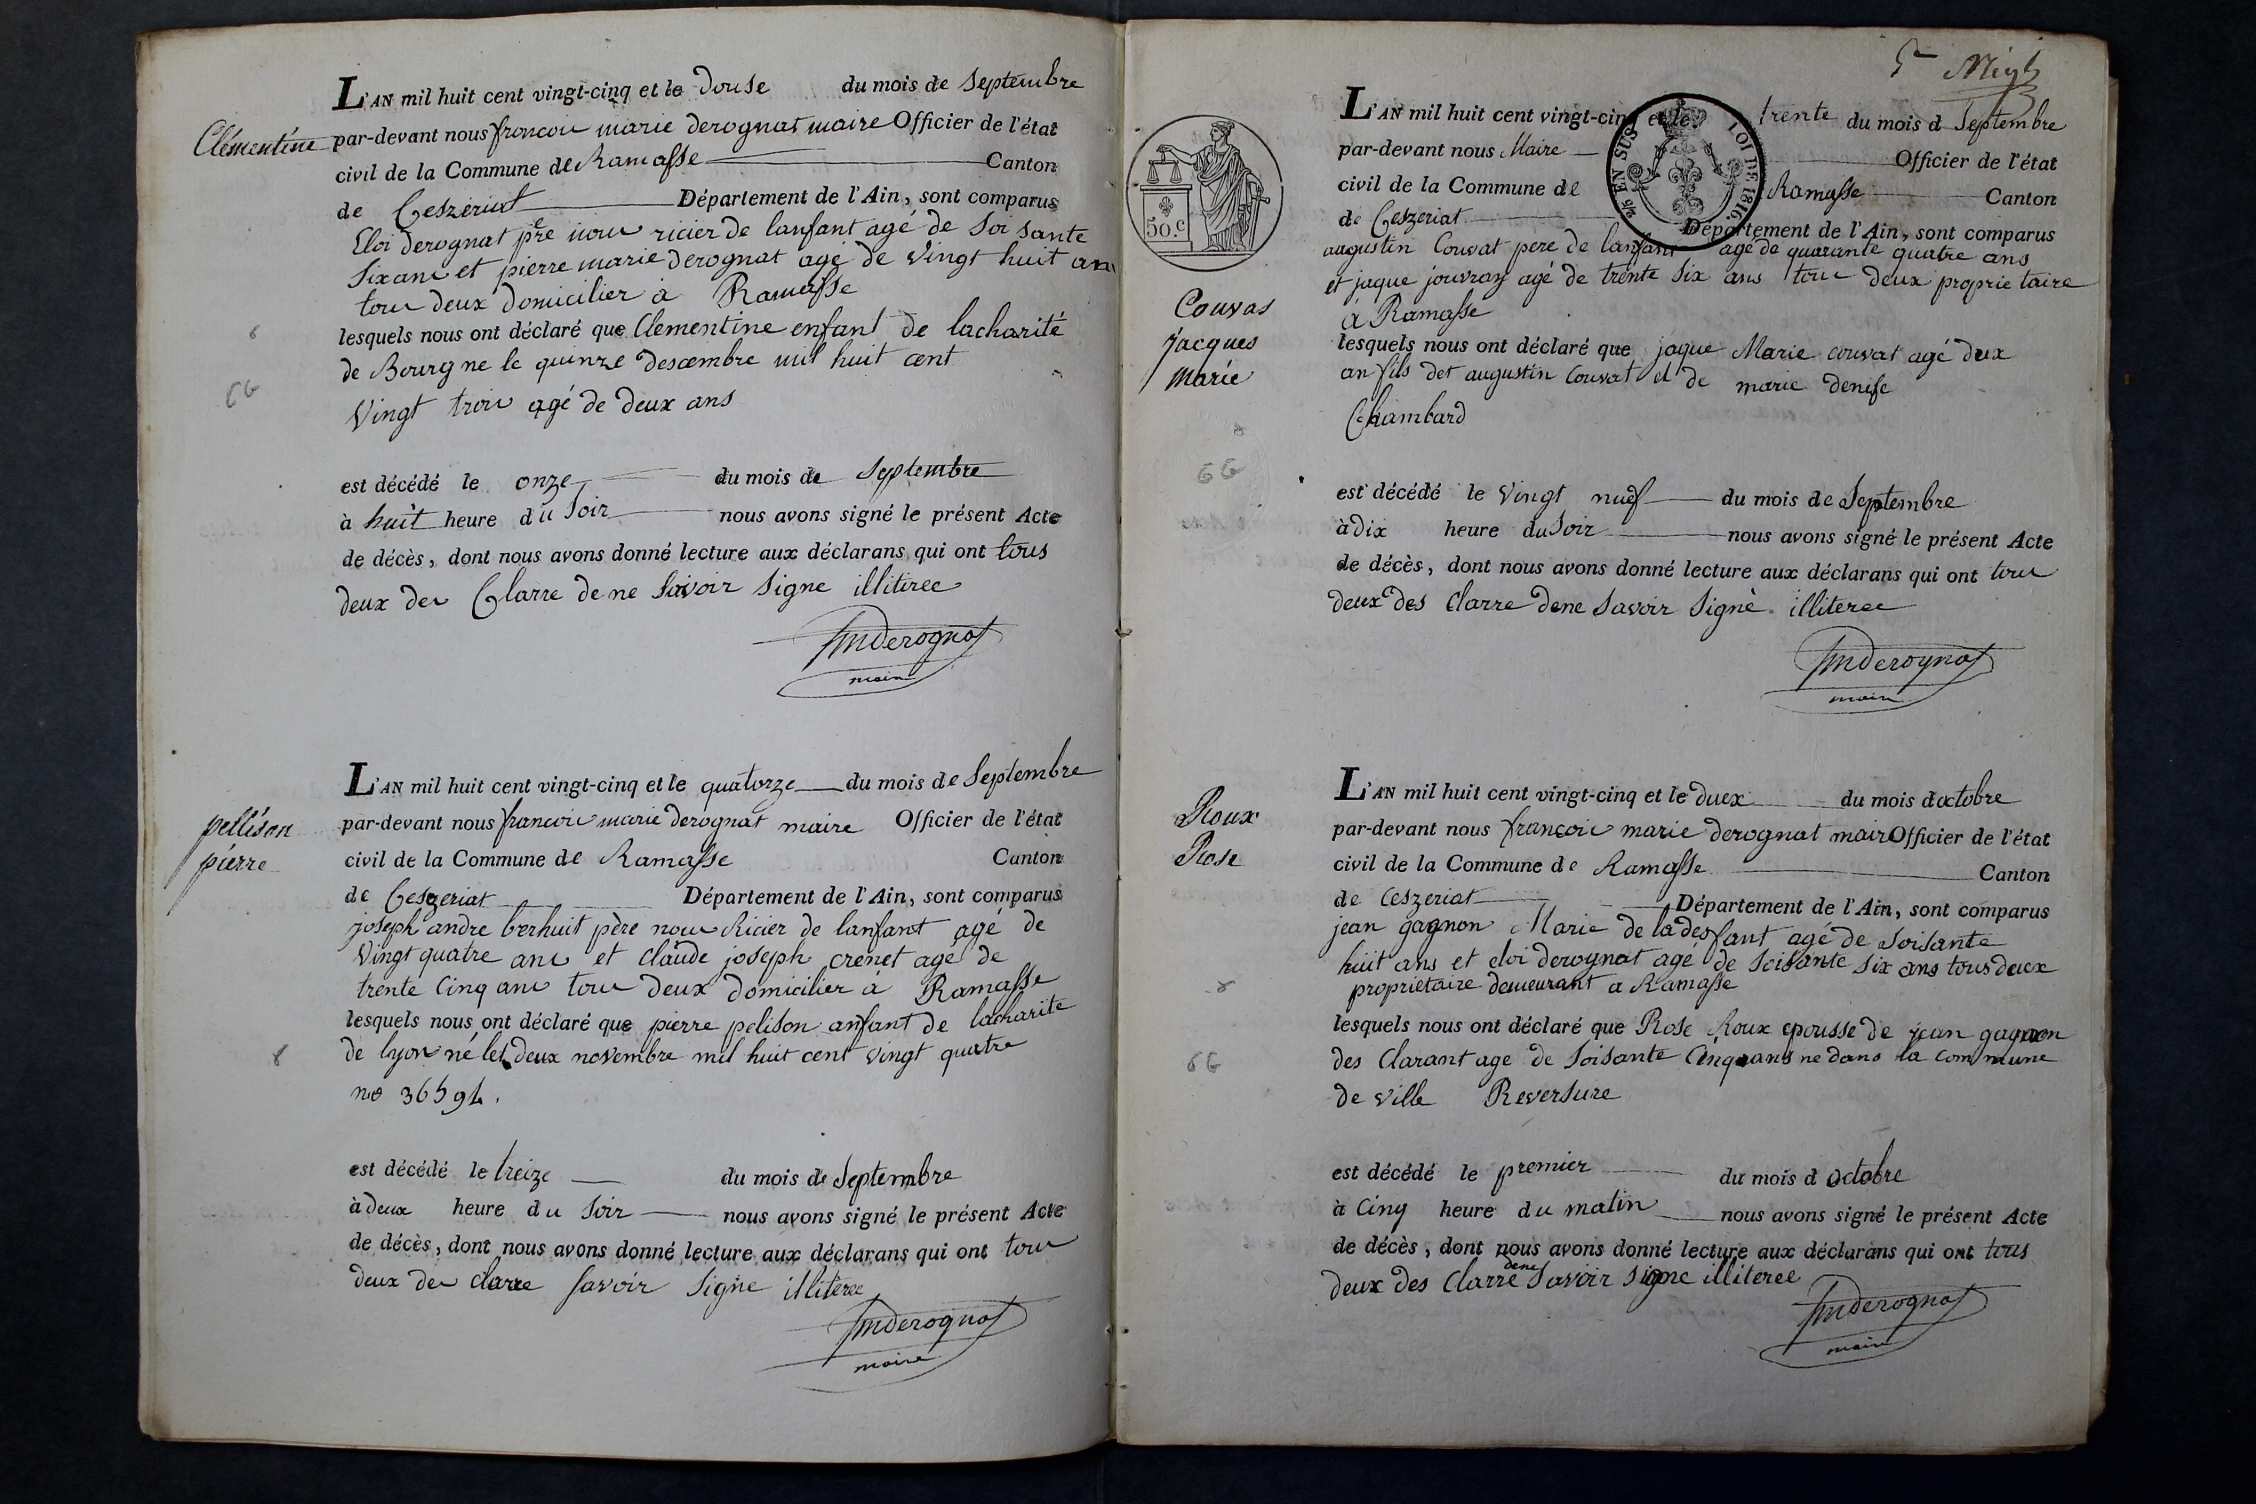 L'AN mil huit cent vingt-cinq et le douse du mois de septembre
Clémentine
par-devant nous francois marie derognat maire Officier de l'état
civil de la Commune de Ramasse Canton
de Ceszeriat Département de l'Ain, sont comparus
Eloi derognat père nou ricier de lanfant agé de Soi sante
Six ans et pierre marie derognat agé de Vingt huit ans
tous deux domicilier a Ramasse
lesquels nous ont déclaré que Clementine enfant de lacharité
de Bourg ne le quinze descembre mil huit cent
Vingt trois agé de deux ans
6
6G
est décédé le onze du mois de Septembre
à huit heure du Soir nous avons signé le présent Acte
de décès, dont nous avons donné lecture aux déclarans qui ont tous
deux des Clarre de ne Savoir Signe illiteree
fmderognat
maire
L'AN mil huit cent vingt-cinq et le quatorze du mois de Septembre
pellison
pierre
par-devant nous francois marie derognat maire Officier de l'état
civil de la Commune de Ramasse Canton
de Ceszeriat Département de l'Ain, sont comparus
joseph andre berhuit père nou Ricier de lanfant agé de
Vingt quatre ans et claude joseph crenet agé de
trente Cinq ans tous deux domicilier a Ramasse
lesquels nous ont déclaré que pierre pelison anfant de lacharité
de lyon né le deux novembre mil huit cent vingt quatre
no 36594.
8
est décédé le treize du mois de Septembre
à deux heure du Soir nous avons signé le présent Acte
de décès, dont nous avons donné lecture aux déclarans qui ont tous
deux des clarre savoir Signe illiteree
fmderognat
maire
5e
L'AN mil huit cent vingt-cinq et le trente du mois d Septembre
par-devant nous Maire Officier de l'état
civil de la Commune de Ramasse Canton
de Ceszeriat Département de l'Ain, sont comparus
2/5 EN SUS LOI DE 1816.
50.c
augustin Couvat pere de lanfant age de quarante quatre ans
et jaque jouvray agé de trente Six ans tous deux proprie taire
a Ramasse
Couvas
jacques
marie
lesquels nous ont déclaré que jaque Marie couvat agé deux
an fils det augustin Couvat et de marie denise
Chambard
8
6G
est décédé le Vingt nuef du mois de Septembre
à dix heure du Soir nous avons signé le présent Acte
de décès, dont nous avons donné lecture aux déclarans qui ont tous
deux des Clarre dene Savoir Signè illiteree
fmderognat
maire
L'AN mil huit cent vingt-cinq et le duex du mois doctobre
Roux
Rose
par-devant nous françois marie derognat maire Officier de l'état
civil de la Commune de Ramasse Canton
de Ceszeriat Département de l'Ain, sont comparus
jean gagnon Marie de la desfant agé de Soisante
huit ans et eloi derognat agé de Soisante Six ans tous deuex
proprietaire demeurant a Ramasse
lesquels nous ont déclaré que Rose Roux epousse de jean gagnon
des Clarant age de Soisante Cinq ans ne dans la commune
de ville Reversure
8
6G
est décédé le premier du mois d octobre
à Cinq heure du matin nous avons signé le présent Acte
de décès, dont nous avons donné lecture aux déclarans qui ont tous
deux des Clarre dene Savoir Signe illiteree
fmderognat
maire